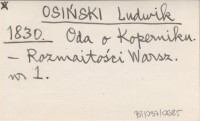 OSIŃSKI Ludwik
1830. Oda o Koperniku.
– Rozmaitości Warsz.
nr 1.